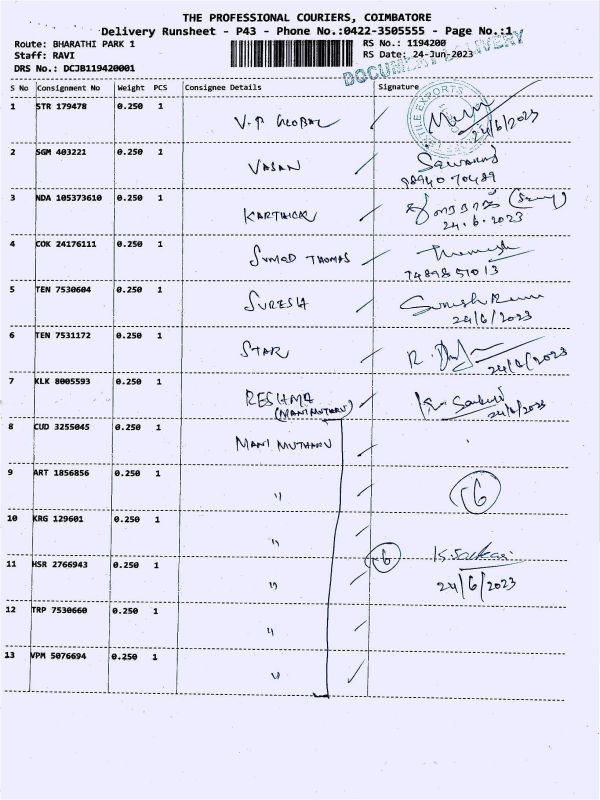 THE PROFESSIONAL COURIERS, COIMBATORE
Delivery Runsheet - P43 - Phone No.:0422-3505555 - Page No.:1
Route: BHARATHI PARK 1
RS No.: 1194200
Staff: RAVI
RS Date: 24-Jun-2023
DRS No.: DCJB119420001
DOCUMENT DELIVERY
S No Consignment No Weight PCS Consignee Details Signature
1 STR 179478 0.250 1 V.P GLOBAL
24/6/2023
2 SGM 403221 0.250 1 VASAN
98940 70489
3 NDA 105373610 0.250 1 KARTHICK
24.6.2023
4 COK 24176111 0.250 1 SUMOD THOMAS
74898 51013
5 TEN 7530604 0.250 1 SURESH
24/6/2023
6 TEN 7531172 0.250 1 STAR
24/6/2023
7 KLK 8005593 0.250 1 RESHMA
(MANI MUTHARU)
24/6/2023
8 CUD 3255045 0.250 1 MANI MUTHARU
9 ART 1856856 0.250 1 "
-6
10 KRG 129601 0.250 1 "
11 HSR 2766943 0.250 1 "
-6
24/6/2023
12 TRP 7530660 0.250 1 "
13 VPM 5076694 0.250 1 "